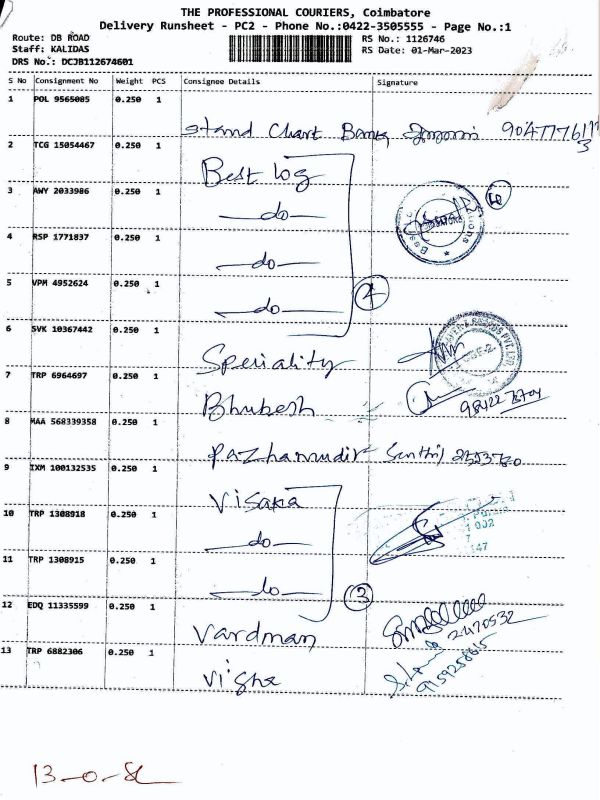 THE PROFESSIONAL COURIERS, Coimbatore
Delivery Runsheet - PC2 - Phone No.:0422-3505555 - Page No.:1
Route: DB ROAD
RS No.: 1126746
Staff: KALIDAS
RS Date: 01-Mar-2023
DRS No.: DCJB112674601
S No Consignment No Weight PCS Consignee Details Signature
1 POL 9565085 0.250 1
Stand Chart Bank
2 TCG 15054467 0.250 1
Best log
3 AWY 2033986 0.250 1
do
4 RSP 1771837 0.250 1
do
5 VPM 4952624 0.250 1
do 4
6 SVK 10367442 0.250 1
Speciality
7 TRP 6964697 0.250 1
Bhubesh
8 MAA 568339358 0.250 1
Pazhamudir Senthil
9 IXM 100132535 0.250 1
Visaka
10 TRP 1308918 0.250 1
do
11 TRP 1308915 0.250 1
do 3
12 EDQ 11335599 0.250 1
Vardman 2470532
13 TRP 6882306 0.250 1
9159258615